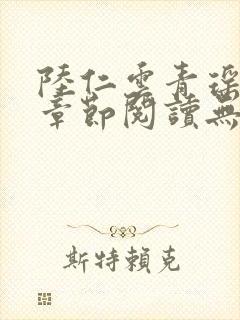 陸仁雲青瑶
章節閱讀無
斯特賴克